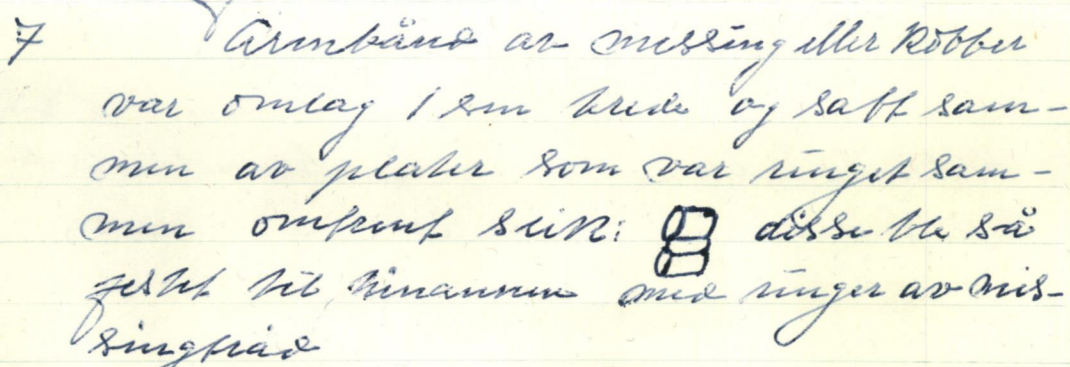 7 Armbånd av messing eller kobber
var omlag 1 sm brede og satt sam-
men av plater som var ringet sam-
men omtrent slik: disse ble så
festet til hinannen med ringer av mes-
singtråd